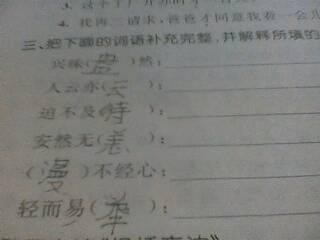 4. 我再三请求,爸爸才同意我看一会儿
三、把下面的词语补充完整,并解释所填的
兴味(盎)然:
人云亦(云):
迫不及(待):
安然无(恙):
(漫)不经心:
轻而易(举):